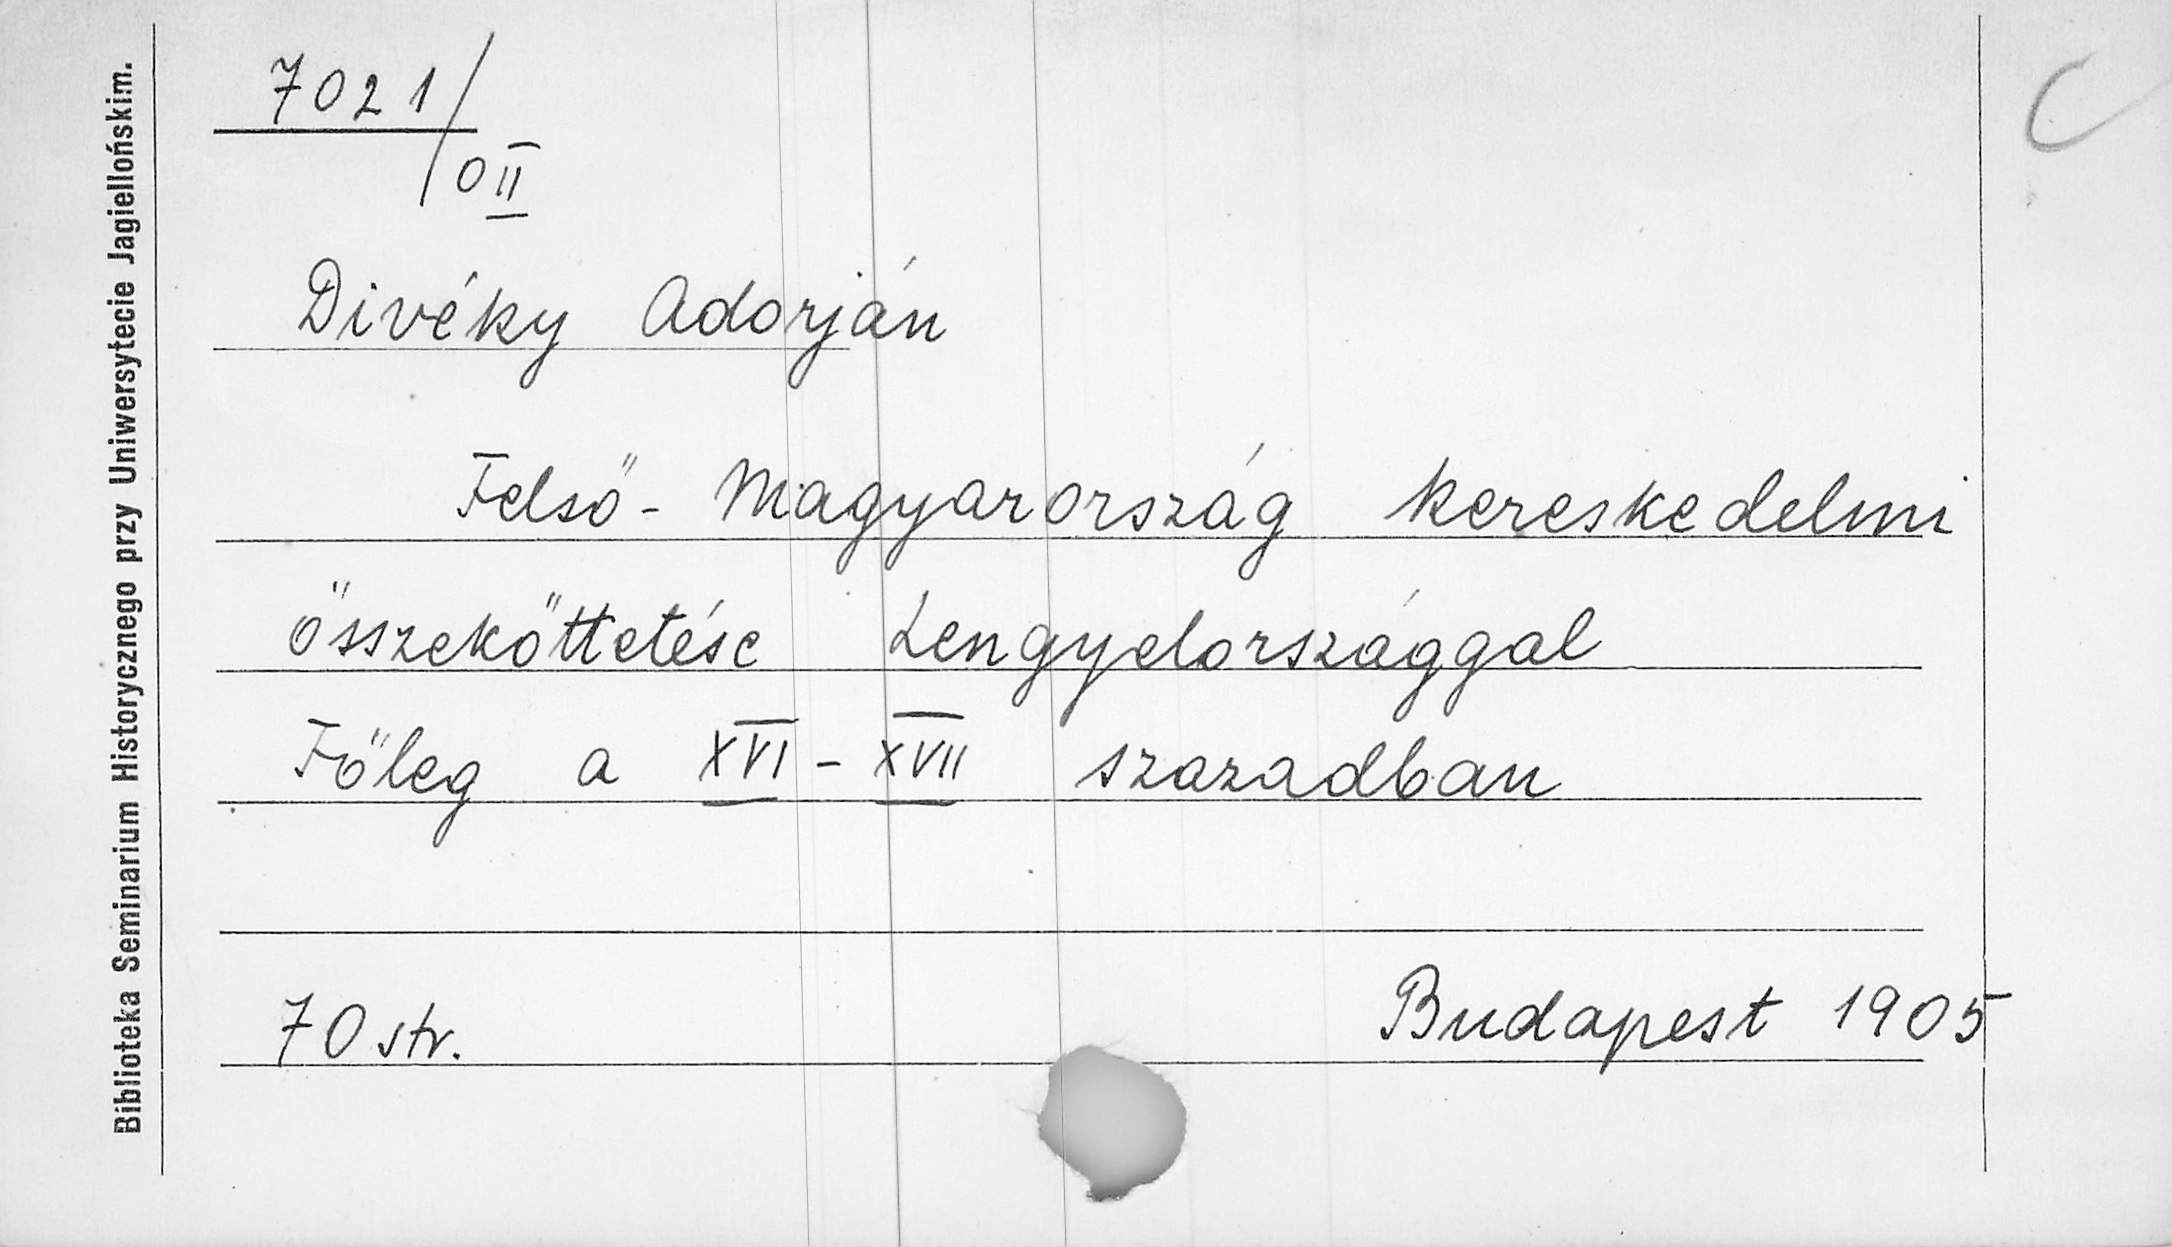 Biblioteka Seminarium Historycznego przy Uniwersytecie Jagiellońskim.
7021/
0 II
C
Divéky Adorján
Felső- Magyarország kereskedelmi
összekőttetése Lengyelországgal
Főleg a XVI - XVII szazadban
70 str. Budapest 1905